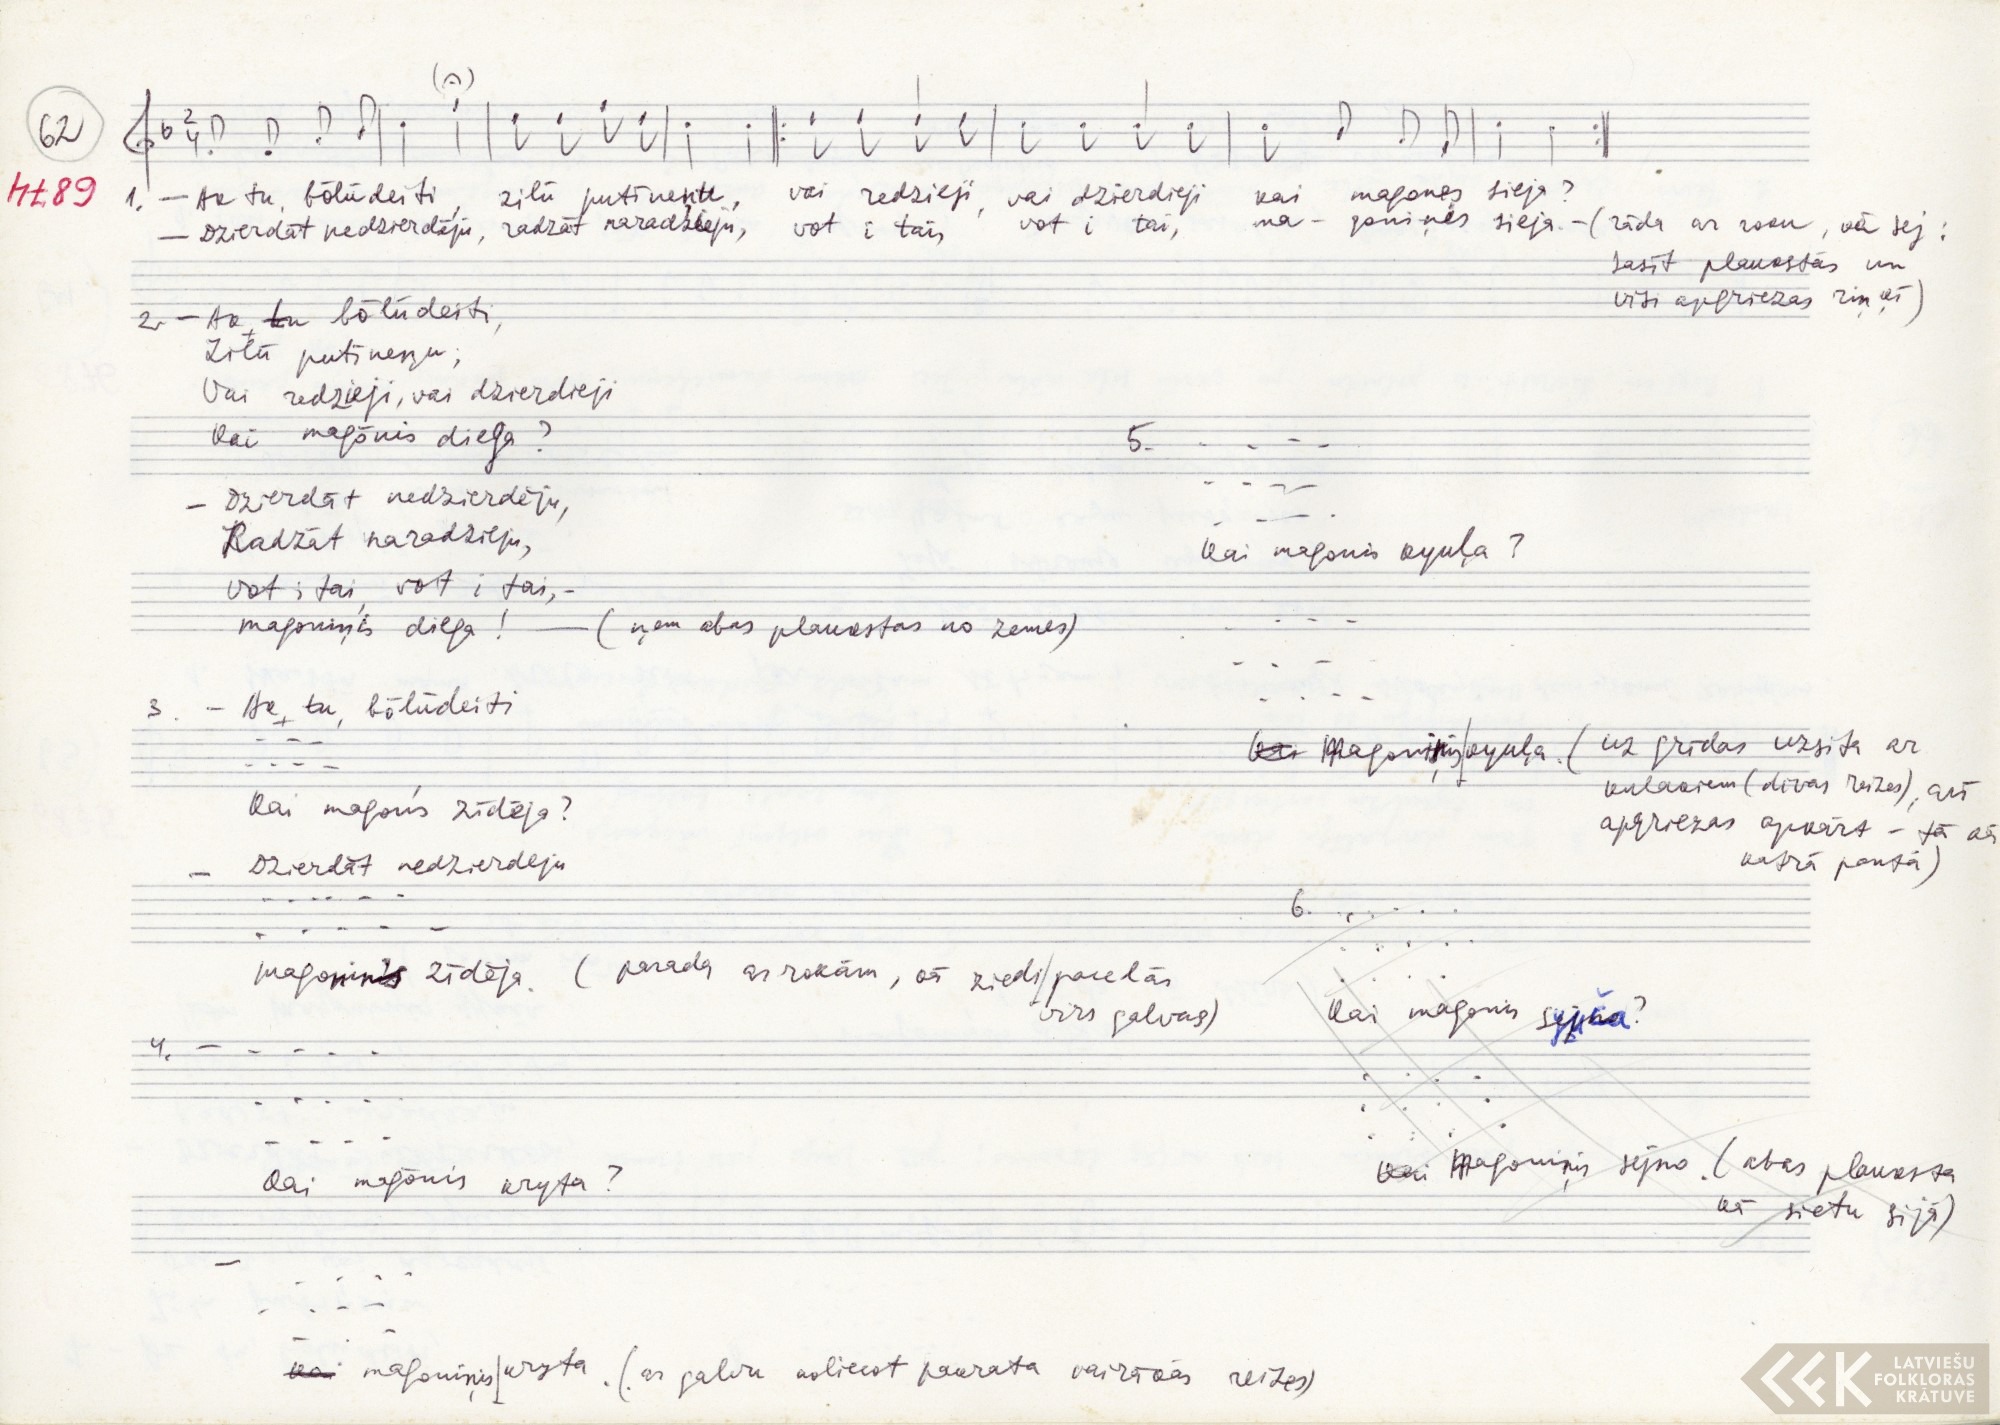 62
4789
1. — Ak tu, bōlūdeiti, zilū putīnesu, vai redzieji, vai dzierdieji kai magones sieja?
— Dzierdāt nedzierdēju, radzāt naradzieju, vot i tai, vot i tai, ma - goniņēs sieja. — (rāda ar roku, kā sēj;
sasit plaukstās un
visi apgriezas riņķī)
2. — Ak, tu bōlūdeiti,
Zilū putinesu;
Vai redzieji, vai dzierdieji
Kai magōnis diega?
— Dzierdāt nedzierdēju,
Radzāt naradzieju,
vot i tai, vot i tai, -
magoniņis diega! — (ņem abas plaukstas no zemes)
3. — Ak, tu, bōlūdeiti
Kai magonis zīdēja?
— Dzierdāt nedzierdēju
magoninis zīdēja. (parāda ar rokām, kā ziedi paceļas
virs galvas)
4. —
Kai magōnis kryta?
—
Kai magoniņis kryta. (ar galvu noliecot pakrata vairākas reizes)
5.
Kai magonis kyuļa?
Kai Magoniņis kyuļa. (uz grīdas uzsita ar
kulakiem (divas reizes), arī
apgriezas apkārt - tā kā
katrā pantā)
6.
Kai magonis
Kai Magoniņis sējno. (abas plauksta
kā sietu sijā)
LATVIEŠU
FOLKLORAS
KRĀTUVE